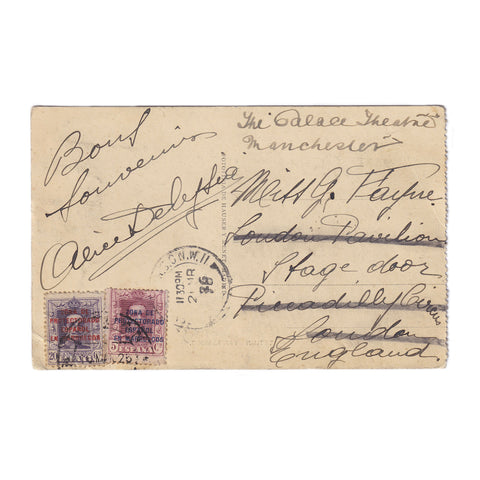 Bons
Souvenirs
Alice Delysia
The Palace Theatre
Manchester
Miss G. Payne
London Pavilion
Stage door
Piccadilly Circus
London
England
LONDON.W.11
26
ZONA DE
PROTECTORADO
ESPAÑOL
EN MARRUECOS
20
ZONA DE
PROTECTORADO
ESPAÑOL
EN MARRUECOS
5 Cs
ESPAÑA